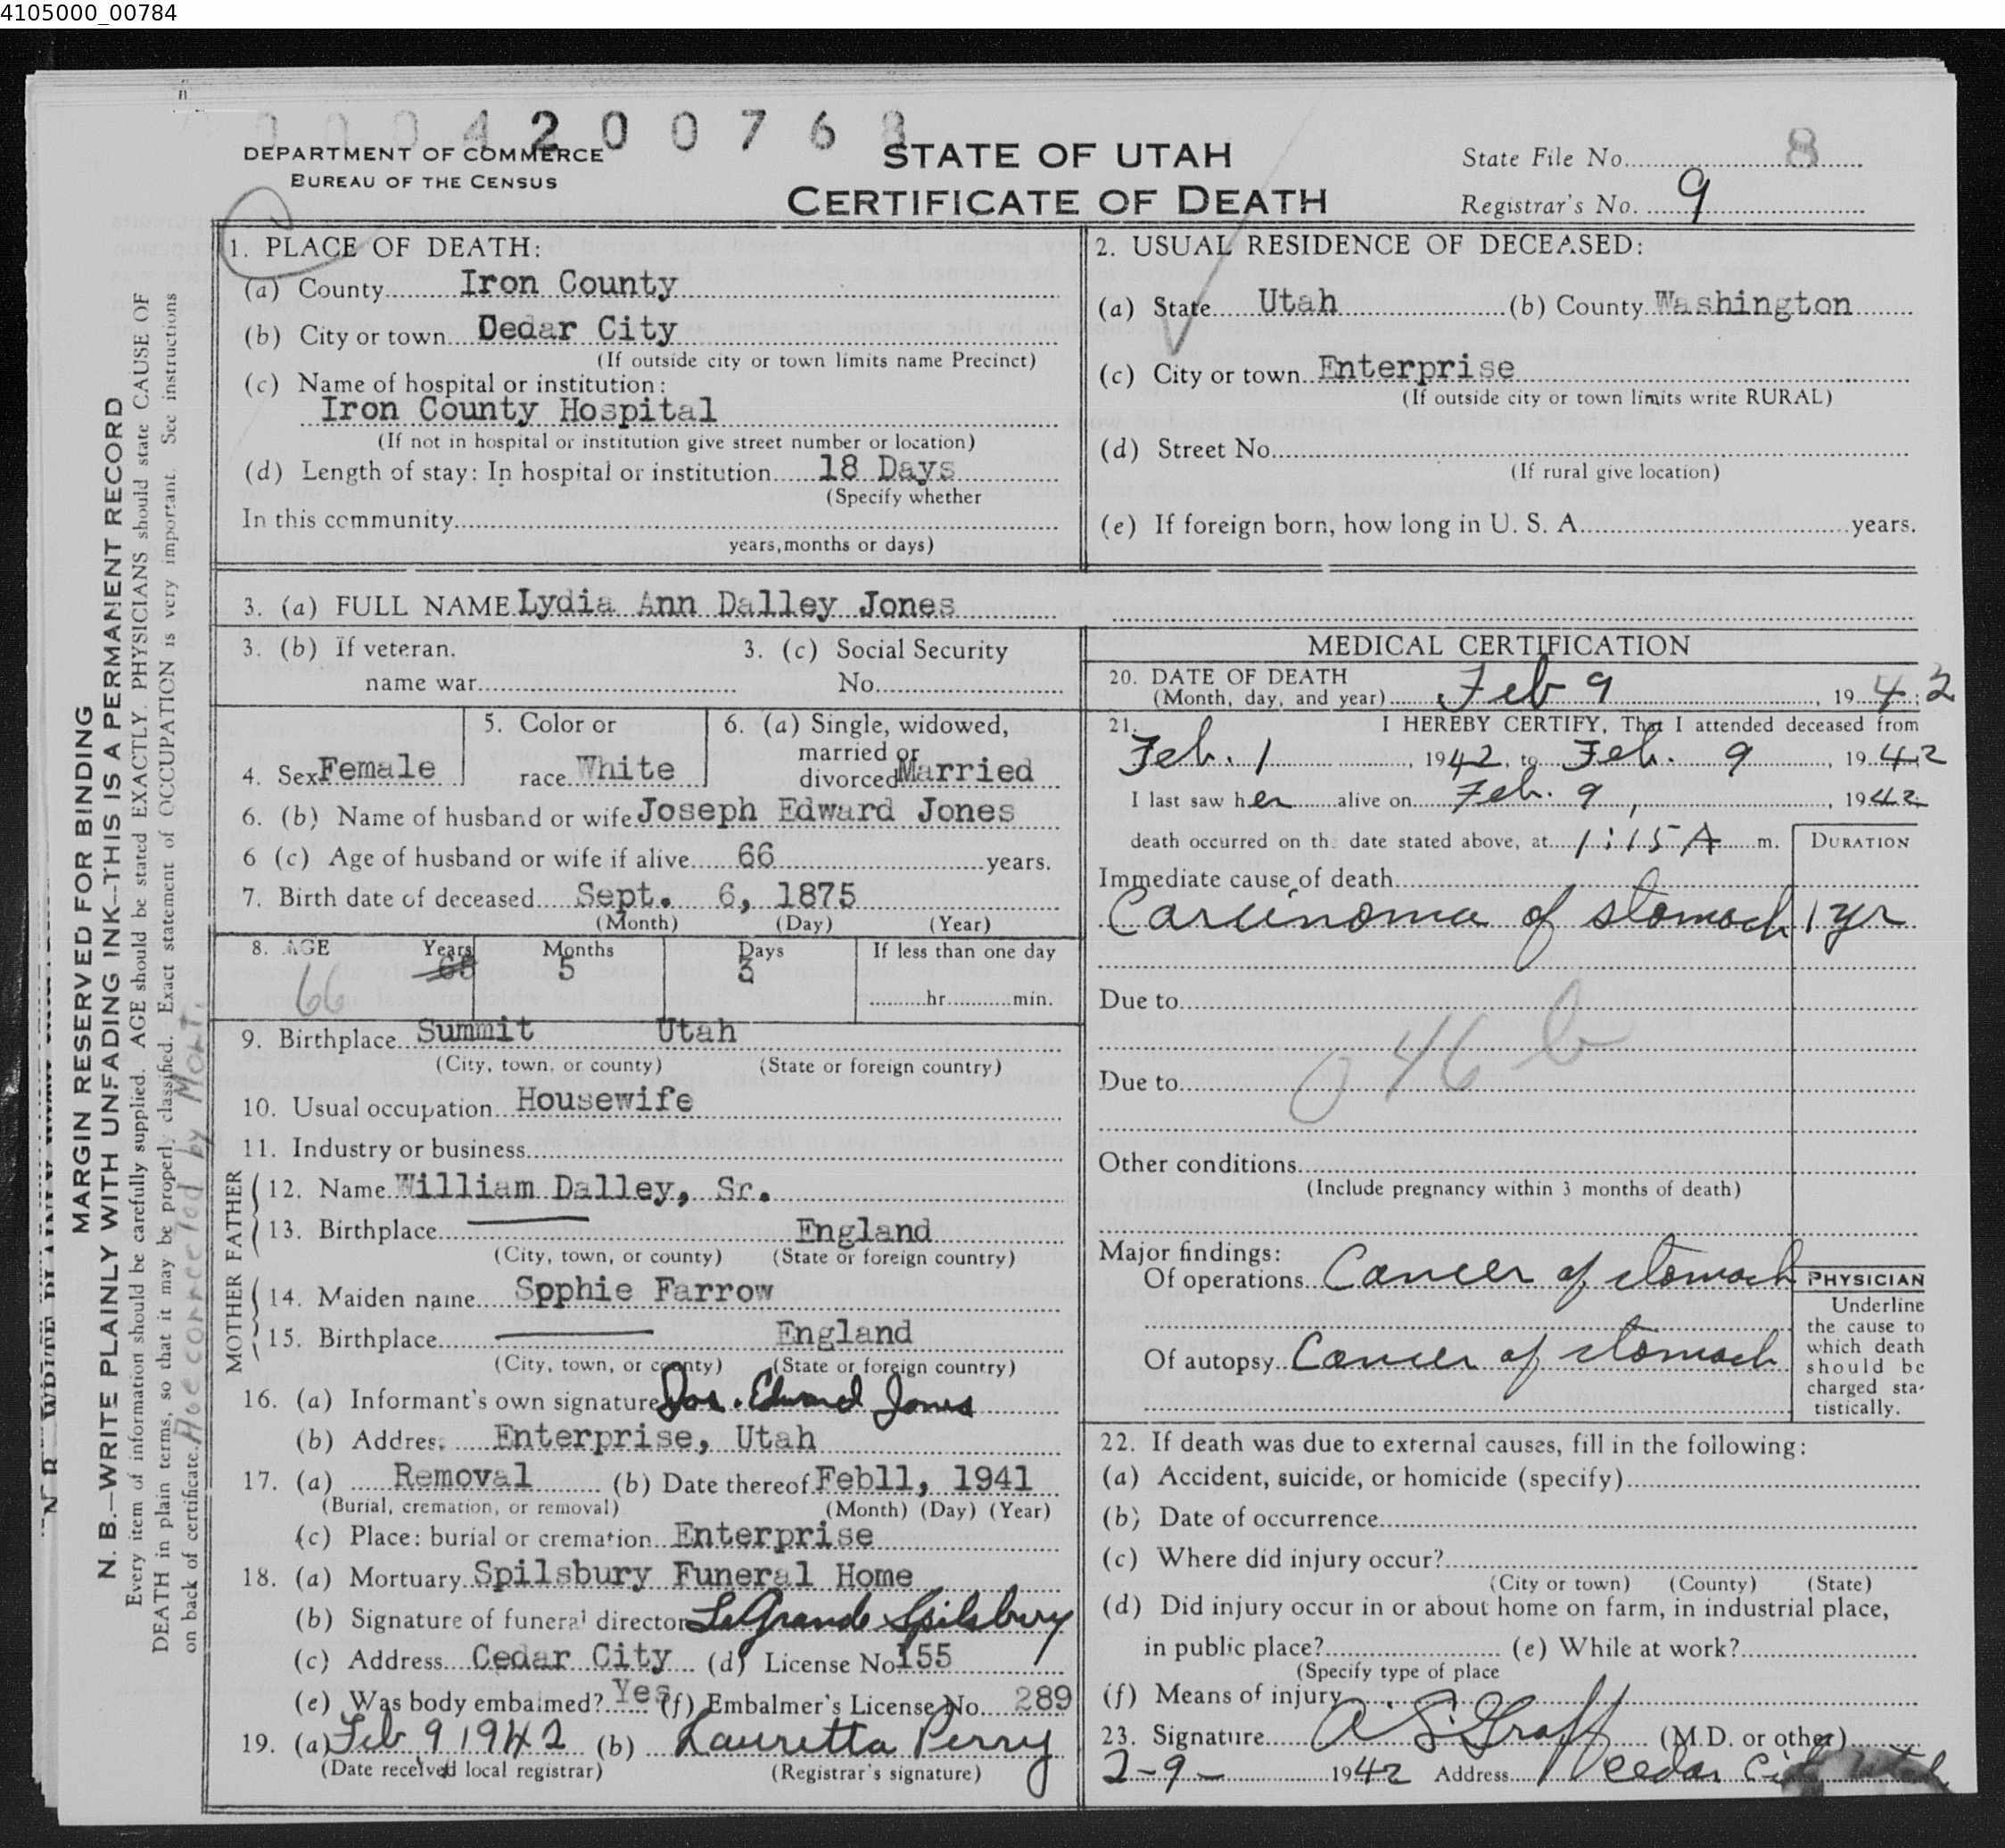 4105000_00784
0 0 0 4 2 0 0 7 6 8
DEPARTMENT OF COMMERCE
BUREAU OF THE CENSUS
STATE OF UTAH
CERTIFICATE OF DEATH
State File No. 8
Registrar's No. 9
1. PLACE OF DEATH:
(a) County Iron County
(b) City or town Dedar City
(If outside city or town limits name Precinct)
(c) Name of hospital or institution:
Iron County Hospital
(If not in hospital or institution give street number or location)
(d) Length of stay: In hospital or institution 18 Days
(Specify whether
In this community
years, months or days)
2. USUAL RESIDENCE OF DECEASED:
(a) State Utah (b) County Washington
(c) City or town Enterprise
(If outside city or town limits write RURAL)
(d) Street No.
(If rural give location)
(e) If foreign born, how long in U. S. A. years.
3. (a) FULL NAME Lydia Ann Dalley Jones
3. (b) If veteran, 3. (c) Social Security
name war No.
4. Sex Female
5. Color or
race White
6. (a) Single, widowed,
married or
divorced Married
6. (b) Name of husband or wife Joseph Edward Jones
6 (c) Age of husband or wife if alive 66 years.
7. Birth date of deceased Sept. 6, 1875
(Month) (Day) (Year)
8. AGE Years Months Days If less than one day
66 5 3
hr. min.
9. Birthplace Summit Utah
(City, town, or county) (State or foreign country)
10. Usual occupation Housewife
11. Industry or business
FATHER
12. Name William Dalley, Sr.
13. Birthplace England
(City, town, or county) (State or foreign country)
MOTHER
14. Maiden name Spphie Farrow
15. Birthplace England
(City, town, or county) (State or foreign country)
16. (a) Informant's own signature Jos. Edward Jones
(b) Address Enterprise, Utah
17. (a) Removal (b) Date thereof Feb11, 1941
(Burial, cremation, or removal) (Month) (Day) (Year)
(c) Place: burial or cremation Enterprise
18. (a) Mortuary Spilsbury Funeral Home
(b) Signature of funeral director LaGrande Spilsbury
(c) Address Cedar City (d) License No 155
(e) Was body embalmed? Yes (f) Embalmer's License No. 289
19. (a) Feb 9 1942 (b) Lauretta Perry
(Date received local registrar) (Registrar's signature)
MEDICAL CERTIFICATION
20. DATE OF DEATH
(Month, day, and year) Feb 9, 1942
21. I HEREBY CERTIFY, That I attended deceased from
Feb. 1, 1942, to Feb. 9, 1942
I last saw her alive on Feb. 9, 1942
death occurred on the date stated above, at 1:15 A m.
DURATION
Immediate cause of death
Carcinoma of stomach 1 yr
Due to
046 b
Due to
Other conditions
(Include pregnancy within 3 months of death)
Major findings:
Of operations Cancer of stomach
Of autopsy Cancer of stomach
PHYSICIAN
Underline
the cause to
which death
should be
charged sta-
tistically.
22. If death was due to external causes, fill in the following:
(a) Accident, suicide, or homicide (specify)
(b) Date of occurrence
(c) Where did injury occur?
(City or town) (County) (State)
(d) Did injury occur in or about home on farm, in industrial place,
in public place? (e) While at work?
(Specify type of place
(f) Means of injury
23. Signature A S Graff (M.D. or other)
2-9- 1942 Address Cedar City Utah
MARGIN RESERVED FOR BINDING
N. B.—WRITE PLAINLY WITH UNFADING INK—THIS IS A PERMANENT RECORD
Every item of information should be carefully supplied. AGE should be stated EXACTLY. PHYSICIANS should state CAUSE OF
DEATH in plain terms, so that it may be properly classified. Exact statement of OCCUPATION is very important. See instructions
on back of certificate. Age corrected by Mort.